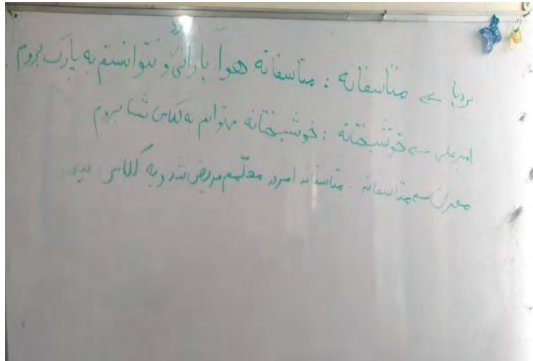 بردیا ← متاسفانه : متاسفانه هوا بارانی و نتوانستم به پارک بروم
امیرعلی ← خوشبختانه : خوشبختانه می‌توانم به کلاس شنا بروم
متاسفانه : متاسفانه امروز معلّمم مریض شد و به کلاس